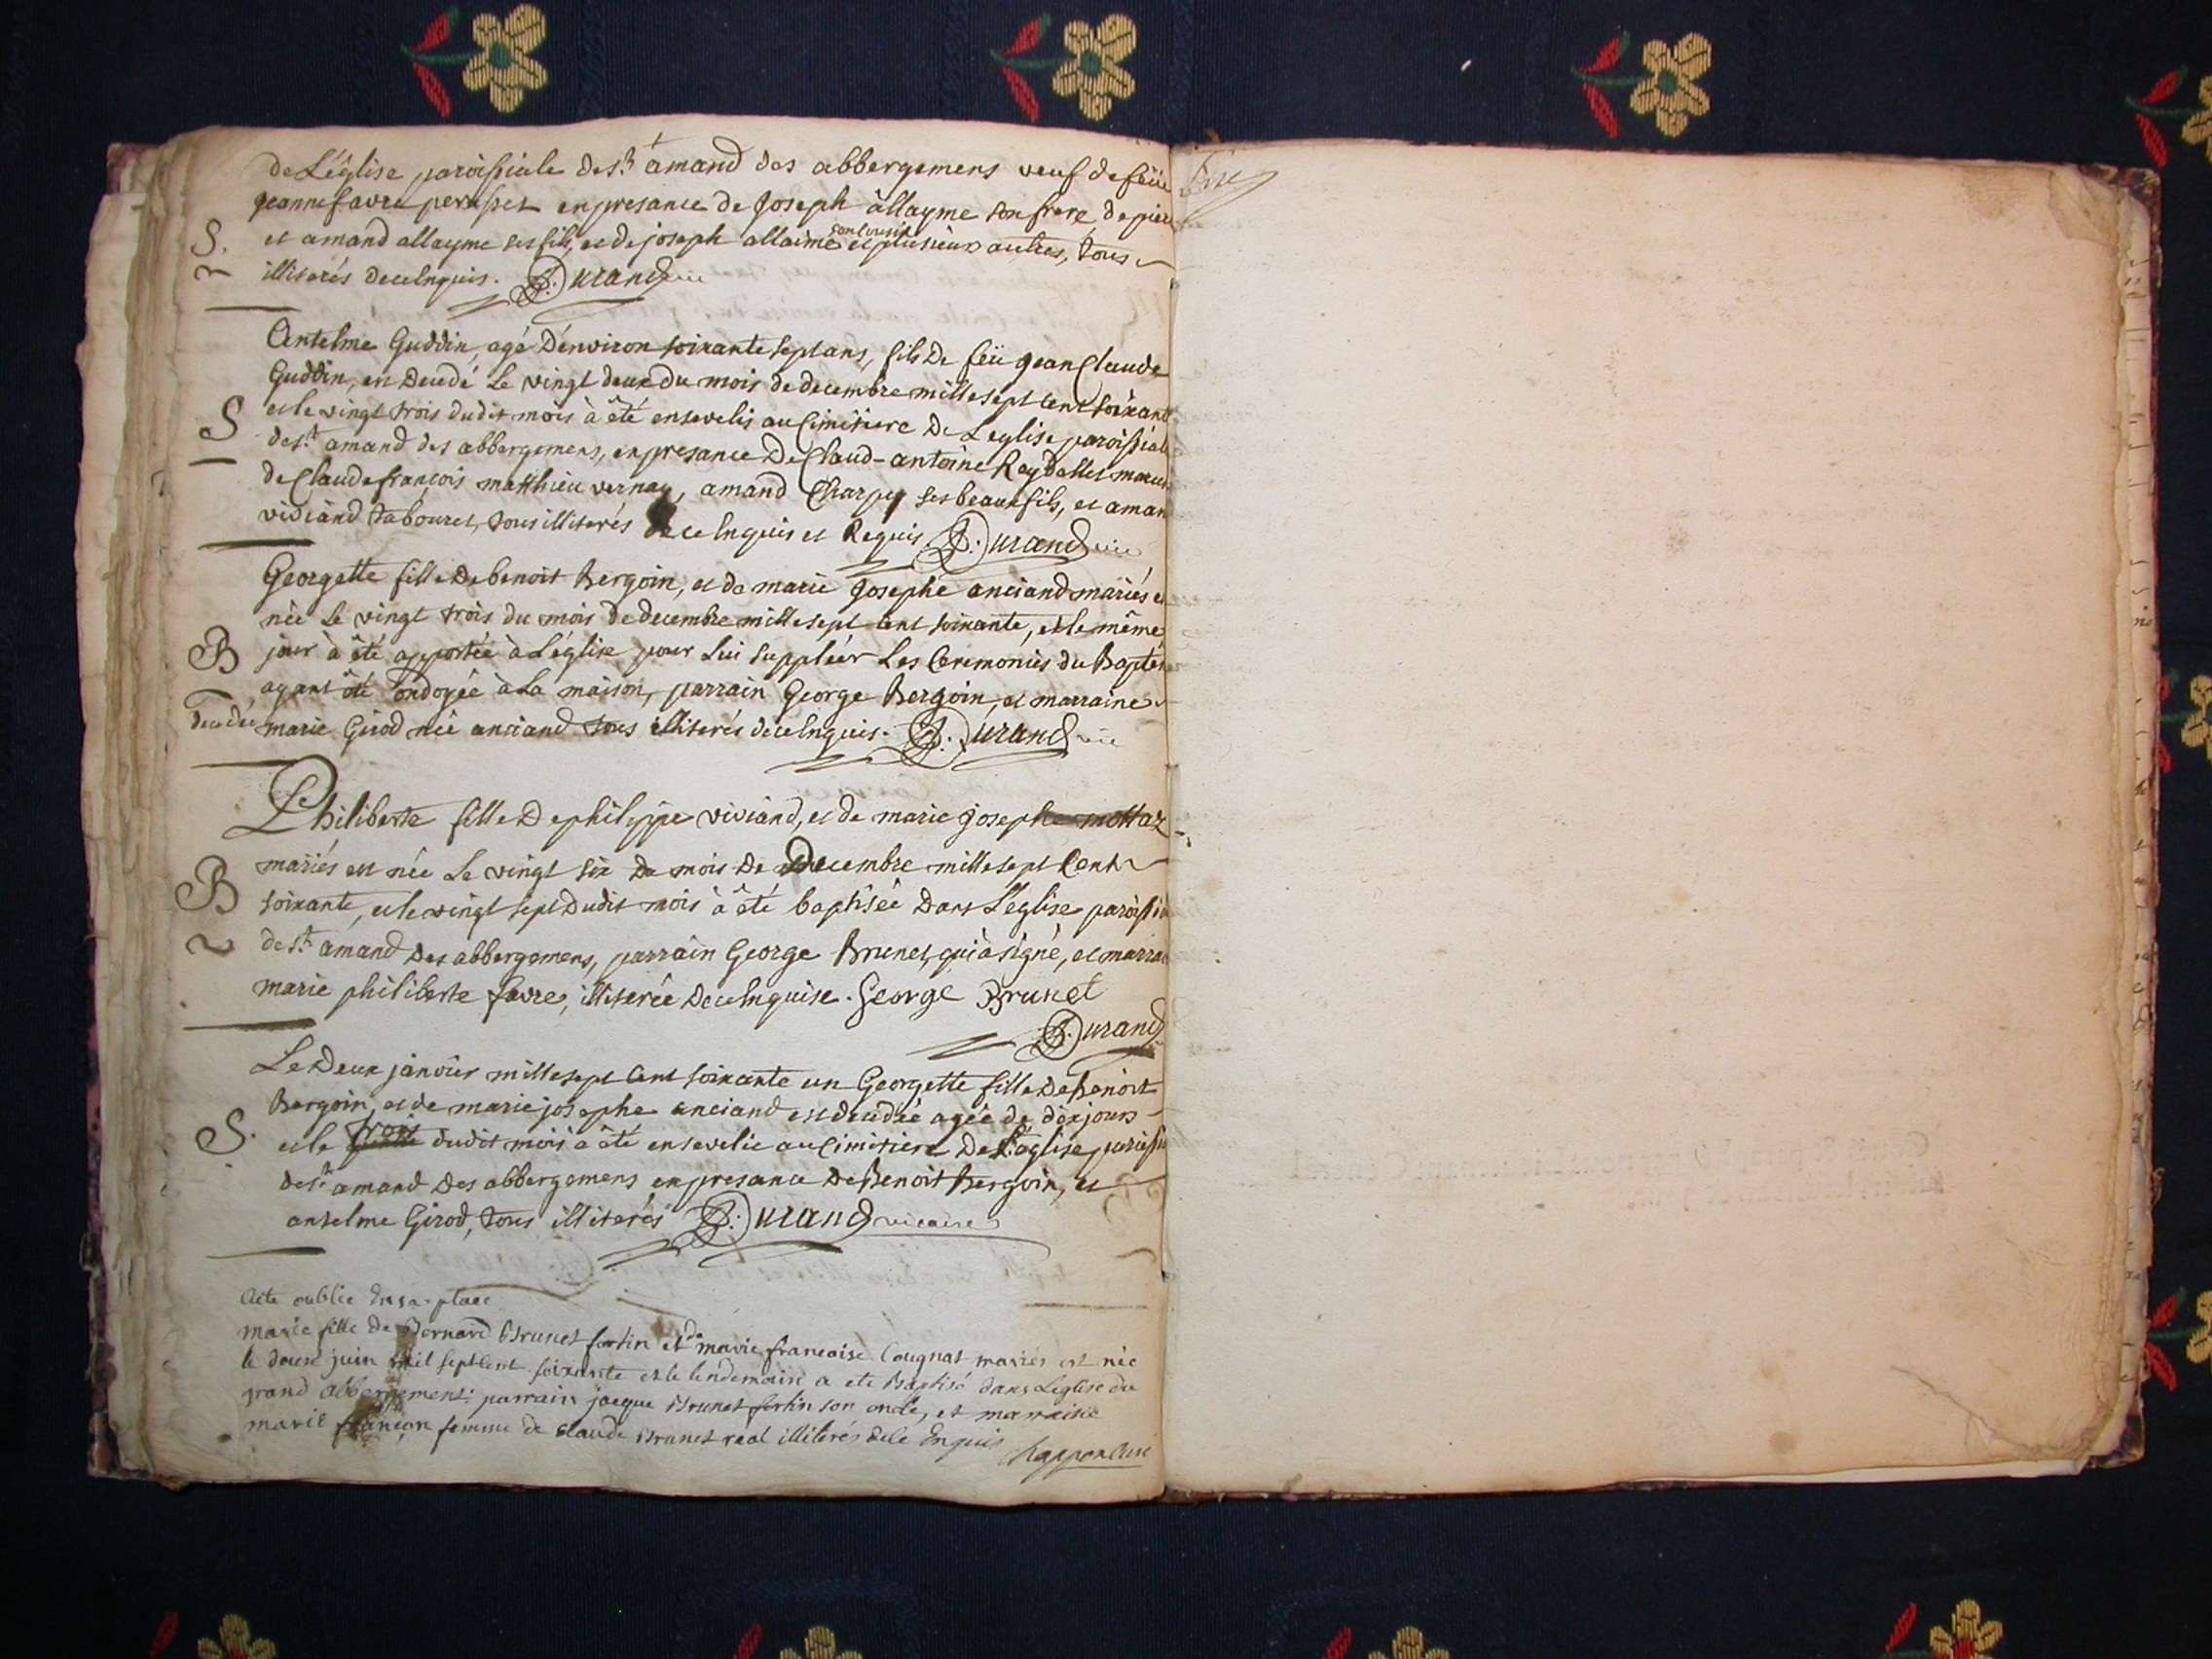 de L'église paroissiale de st amand des abbergemens veuf de feüe
jeanne favre perusset en presance de Joseph allayme son frere, de pier
S. et amand allayme ses fils, et de joseph allaime son cousin et plusieurs autres, tous
illiterés de ce Inquis. B. Durand vic
Antelme Guddin, agé d'énviron soixante sept ans, fils de feü jean Claude
Guddin, est decedé le vingt deux du mois de decembre mille sept cent soixante
S et le vingt trois dudit mois à été ensevelis au Cimitiere de L'eglise paroissiale
de st amand des abbergemens, en presance de Claud-antoine Reydallet
de Claude françois matthieu vernay, amand Charpy ses beaux fils, et aman
viviand tabouret, tous illiterés de ce Inquis et Requis. B. Durand vic
Georgette fille de benoit Bergoin, et de marie Josephe anciand mariés est
née le vingt trois du mois de decembre mille sept cent soixante, et le même
B jour à été apportée à L'église pour lui suppléer Les Ceremonies du Baptême
ayant été ondoyée à la maison, parrain George Bergoin, et marraine
decedée marie Girod née anciand tous illiterés de ce Inquis. B. Durand vic
Philiberte fille de philippe viviand, et de marie josephe mottaz
mariés est née Le vingt six du mois de Decembre mille sept Cent
B soixante, et le vingt sept dudit mois à été baptisée dans L'église paroissia
de st amand des abbergemens, parrain George Brunet, qui à signé, et marrai
marie philiberte favre, illiterée de ce Inquise. George Brunet
B. Durand
Le Deux janvier mille sept cent soixante un Georgette fille de Benoit
Bergoin, et de marie josephe anciand est decedée agée de dix jours
S. et le trois dudit mois à été ensevelie au Cimitiere de L'église paroissi
de st amand des abbergemens en presance de Benoit Bergoin, et
antelme Girod, tous illiterés B. Durand vicaire
Acte oublié En sa place
marie fille de Bernard Brunet fortin et de marie francoise Cougnat mariés est née
le douze juin mil sept cent soixante et le lendemain a eté Baptisé dans L'église du
grand abbergement: parrain jacque Brunet fortin son oncle, et marraine
marie françon femme de Claude Brunet réal illiterés de ce Enquis
Chappon Curé